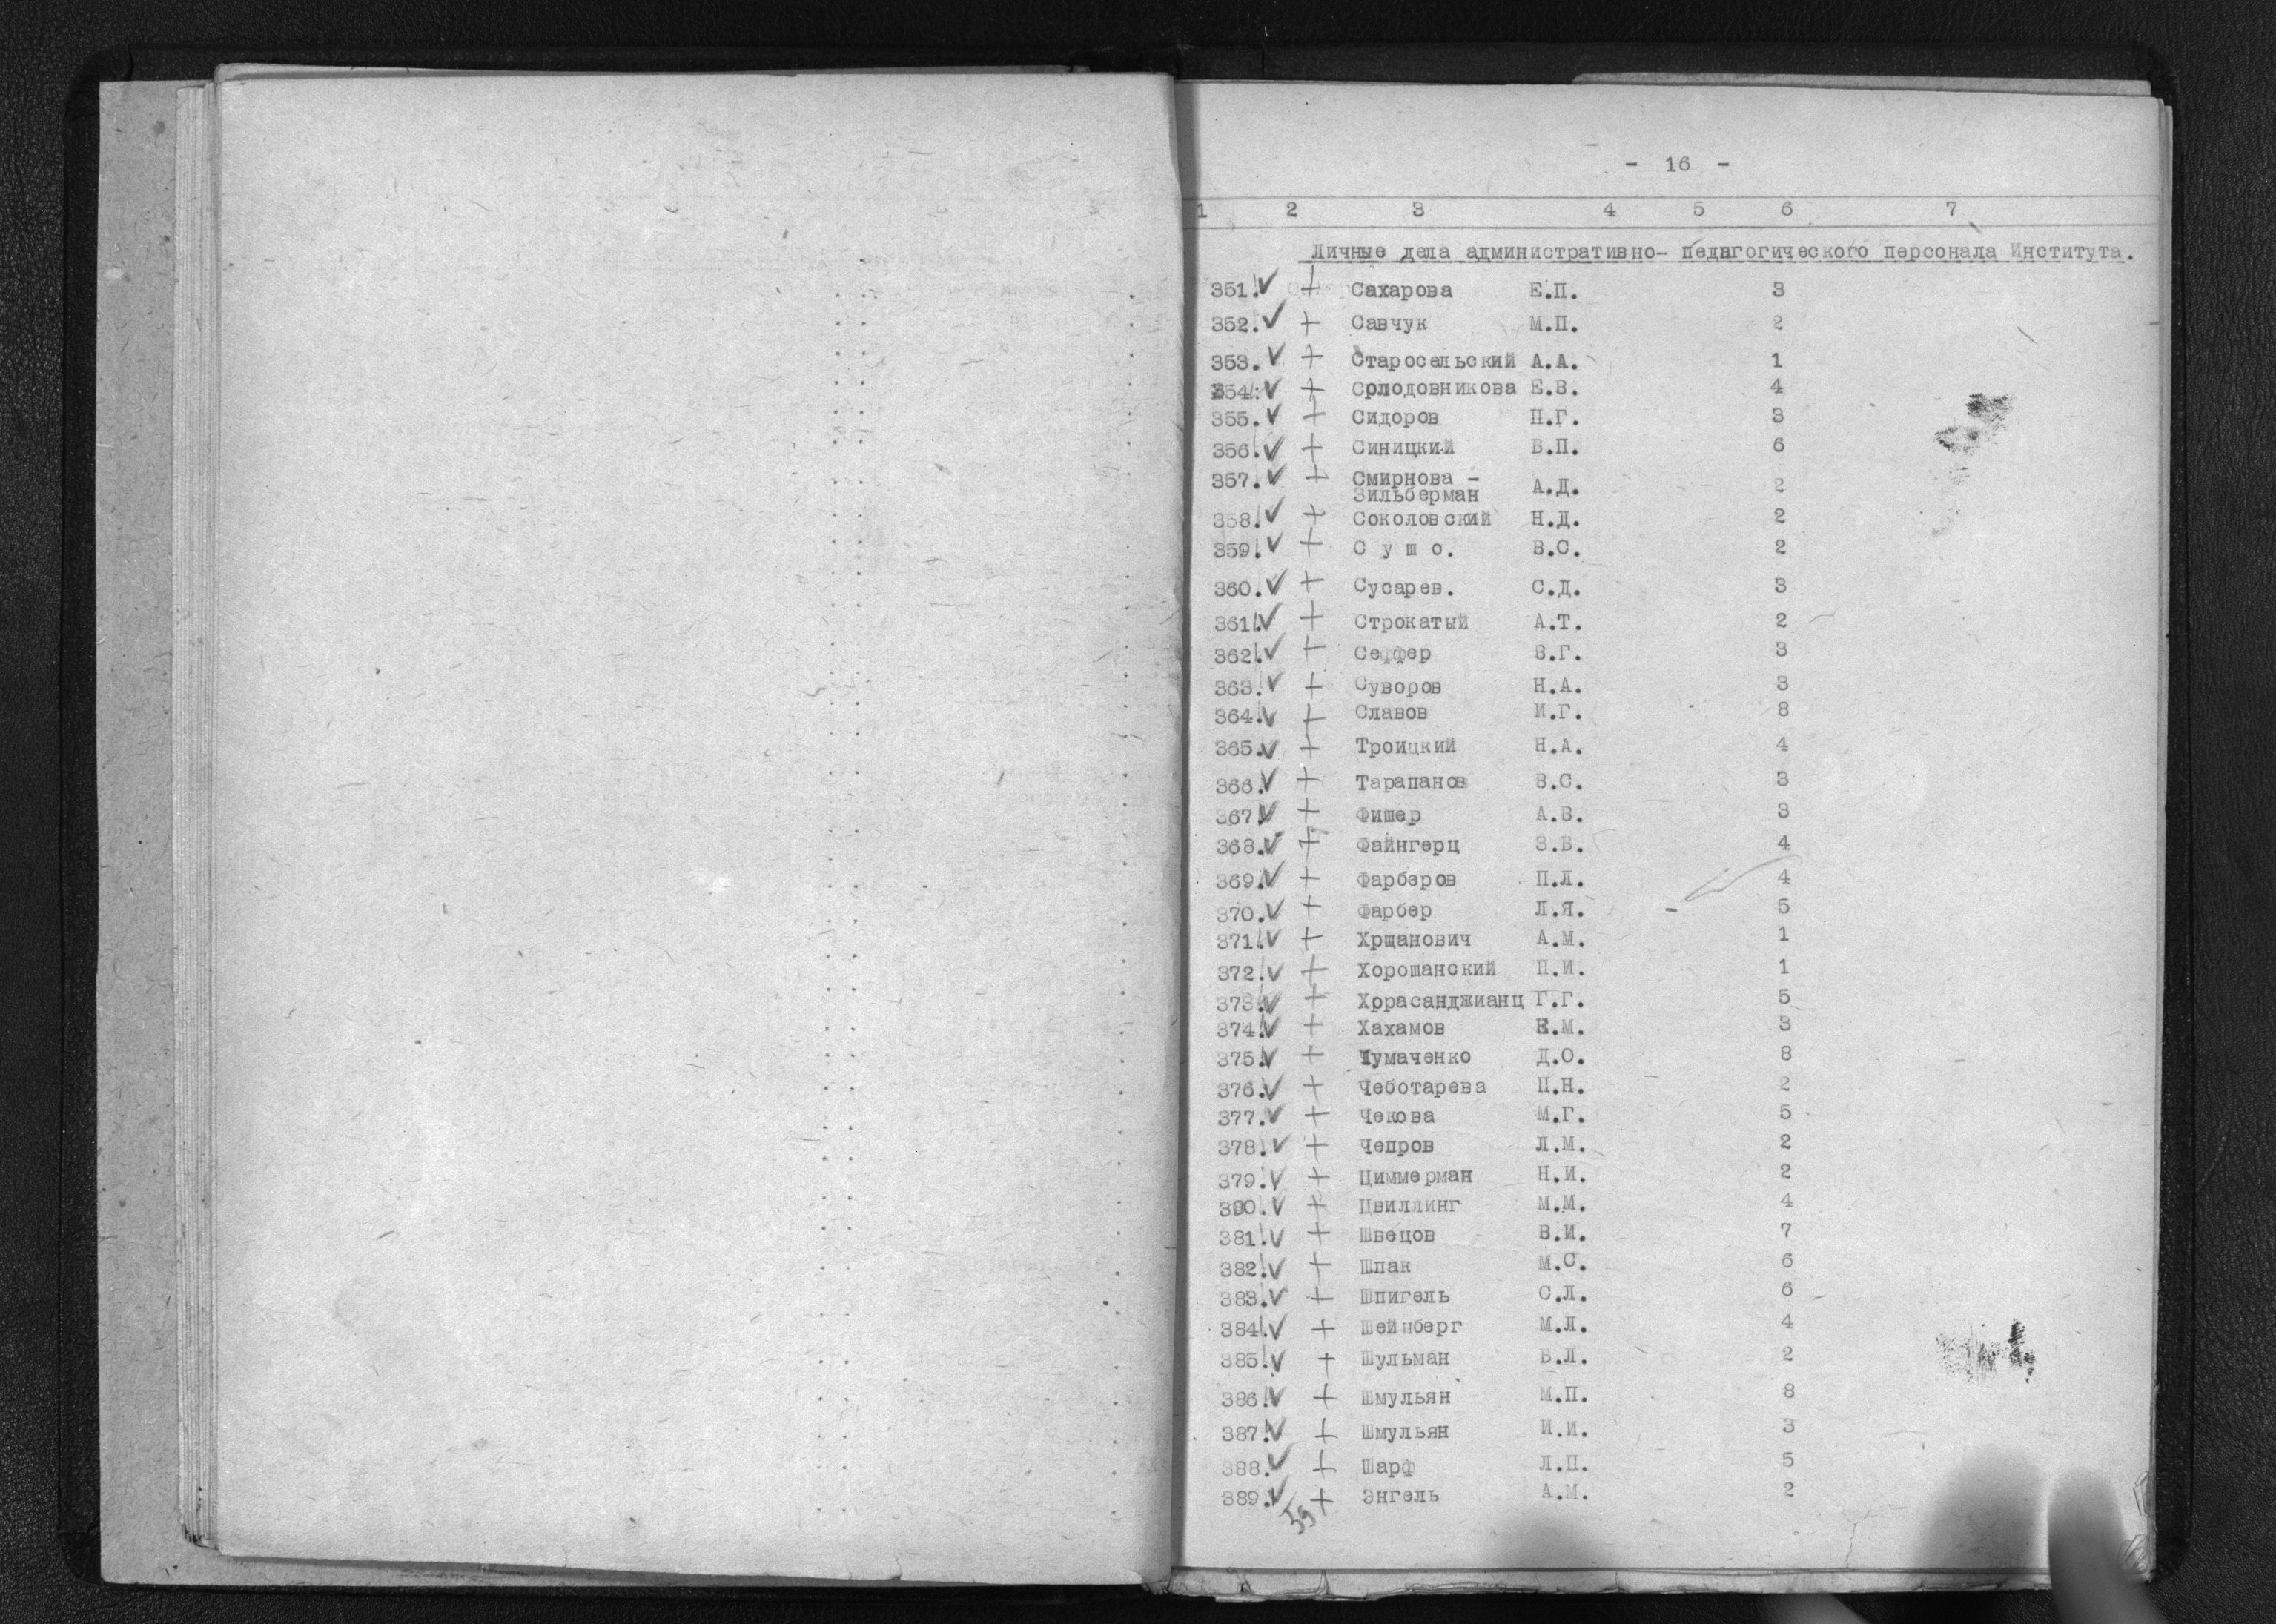 - 16 -
1 2 3 4 5 6 7
Личные дела административно- педагогического персонала Института.
351. V + Сахарова Е.П. 3
352. V + Савчук М.П. 2
353. V + Старосельский А.А. 1
354. V + Солодовникова Е.В. 4
355. V + Сидоров П.Г. 3
356. V + Синицкий Б.П. 6
357. V + Смирнова -
Зильберман А.Д. 2
358. V + Соколовский Н.Д. 2
359. V + С у ш о. В.С. 2
360. V + Сусарев. С.Д. 3
361. V + Строкатый А.Т. 2
362. V + Сеффер В.Г. 3
363. V + Суворов Н.А. 3
364. V + Славов И.Г. 8
365. V + Троицкий Н.А. 4
366. V + Тарапанов В.С. 3
367. V + Фишер А.В. 3
368. V + Файнгерц З.В. 4
369. V + Фарберов П.Л. 4
370. V + Фарбер Л.Я. 5
371. V + Хрщанович А.М. 1
372. V + Хорошанский П.И. 1
373. V + Хорасанджианц Г.Г. 5
374. V + Хахамов Е.М. 3
375. V + Чумаченко Д.О. 8
376. V + Чеботарева П.Н. 2
377. V + Чекова М.Г. 5
378. V + Чепров Л.М. 2
379. V + Циммерман Н.И. 2
380. V + Цвиллинг М.М. 4
381. V + Швецов В.И. 7
382. V + Шпак М.С. 6
383. V + Шпигель С.Л. 6
384. V + Шейнберг М.Л. 4
385. V + Шульман Б.Л. 2
386. V + Шмульян М.П. 8
387. V + Шмульян И.И. 3
388. V + Шарф Л.П. 5
389. V + Энгель А.М. 2